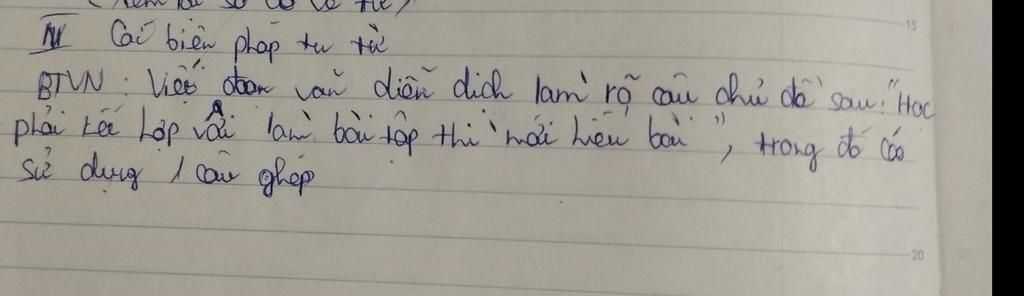 (xem lại sơ đồ về từ)
IV Các biện pháp tu từ
BTVN : Viết đoạn văn diễn dịch làm rõ câu chủ đề sau: "Học
phải kết hợp với làm bài tập thì mới hiểu bài", trong đó có
sử dụng 1 câu ghép
15
20